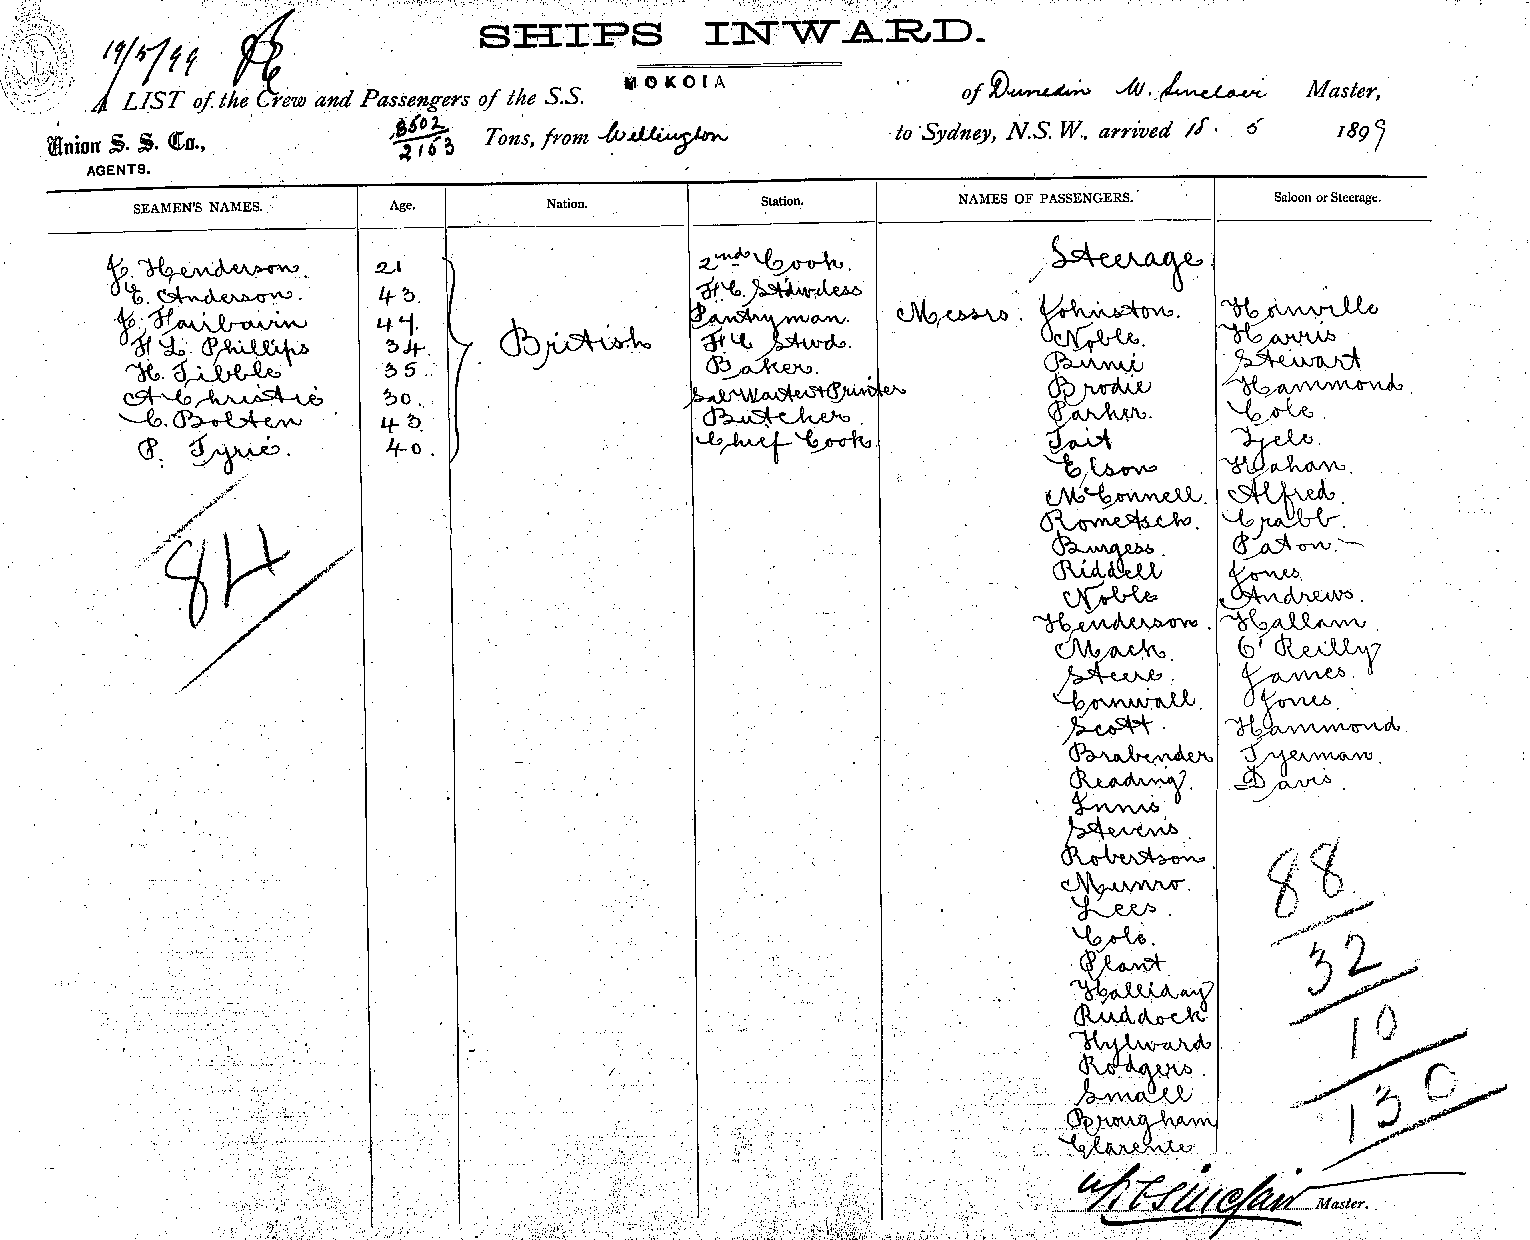 19/5/99
SHIPS INWARD.
A LIST of the Crew and Passengers of the S.S. MOKOIA of Dunedin W. Sinclair Master,
Union S. S. Co., 3502/2153 Tons, from Wellington to Sydney, N.S.W., arrived 18. 5 1899
AGENTS.
SEAMEN'S NAMES. Age. Nation. Station. NAMES OF PASSENGERS. Saloon or Steerage.
J. Henderson. 21 2nd Cook. Steerage
E. Anderson. 43. F.C. Stdwdess
J. Fairbairn 47. British Pantryman. Messrs. Johnston. Hornville
H L. Phillips 34. F C Stwd. Noble. Harris
H. Tibble 35. Baker. Birnie Stewart
A Christie 30. Sal Waiter & Printer Brodie Hammond
C. Bolten 43. Butcher Parker. Cole
P. Tyrie. 40. Chief Cook Tait Tyele.
Elson Kahan.
McConnell. Alfred.
Rometsch. Crabb.
84 Burgess. Paton.
Riddell Jones
Noble Andrews.
Henderson. Hallam
Mack. O'Reilly
Steere. James.
Cornwall. Jones.
Scott. Hammond
Brabender Tyerman.
Reading Davis.
Innis
Stevens
Robertson. 88
Munro.
Lees.
Cole. 32
Plant
Halliday
Ruddock 10
Hylward
Rodgers.
Small 130
Brougham
Clarente
W Sinclair Master.